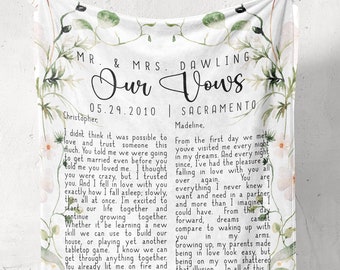 MR. & MRS. DAWLING
Our Vows
05.29.2010 | SACRAMENTO
Christopher,
I didn't think it was possible to
love and trust someone this
much. You told me we were going
to get married even before you
told me you loved me. I thought
you were crazy, but I trusted
you. And I fell in love with you
exactly how I fall asleep; slowly,
then all at once. I'm excited to
start our life together and
continue growing together.
Whether it be learning a new
skill we can use to build our
house, or playing yet another
tabletop game. I know we can
get through anything together.
You already lit me on fire and
Madeline,
From the first day we met,
you've visited me every night
in my dreams. And every night
since, I've had the pleasure of
falling in love with you all
over again. You are
everything I never knew I
want and need in a partner
and more than I imagined I
could have. From this day
forward, dreams can't
compare to waking up with
you in my arms.
Growing up, my parents made
being in love look easy, but
being on my own shattered
that illusion. In all of this I